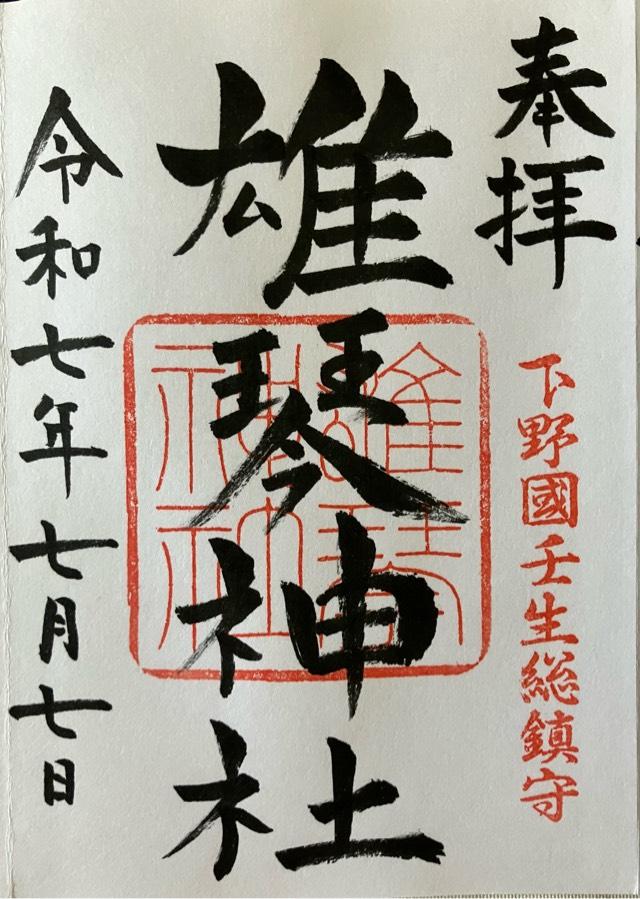 奉拝
下野國壬生総鎮守
雄琴神社
雄琴神社
令和七年七月七日